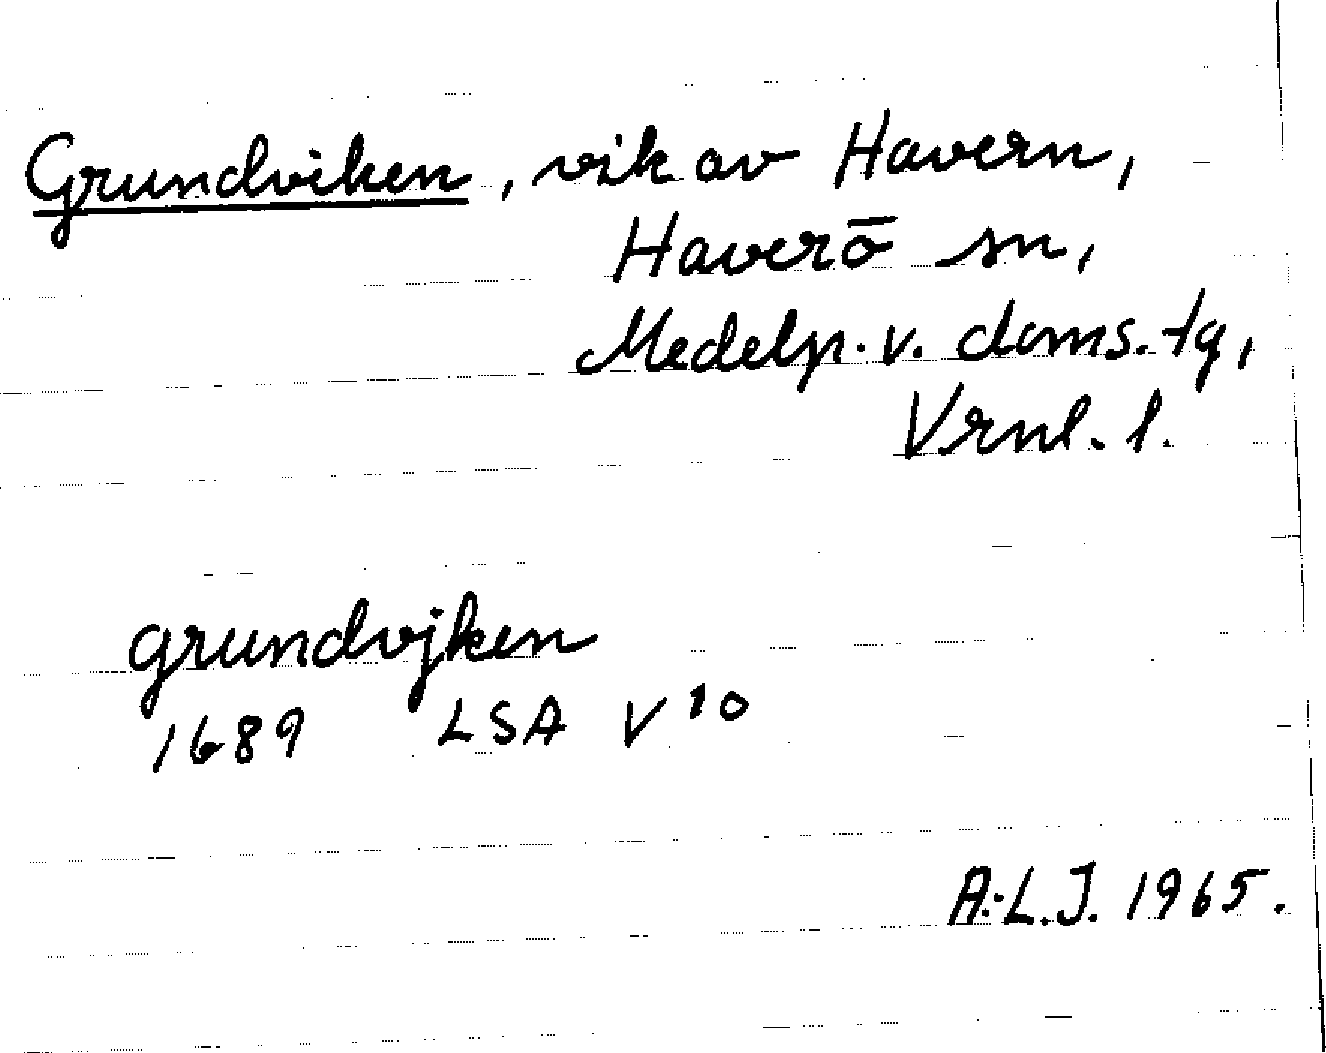 Grundviken, vik av Havern,
Haverö sn,
Medelp. v. doms. tg,
Vrnl. l.
grundvjken
1689 LSA V 10
A:L.J. 1965.